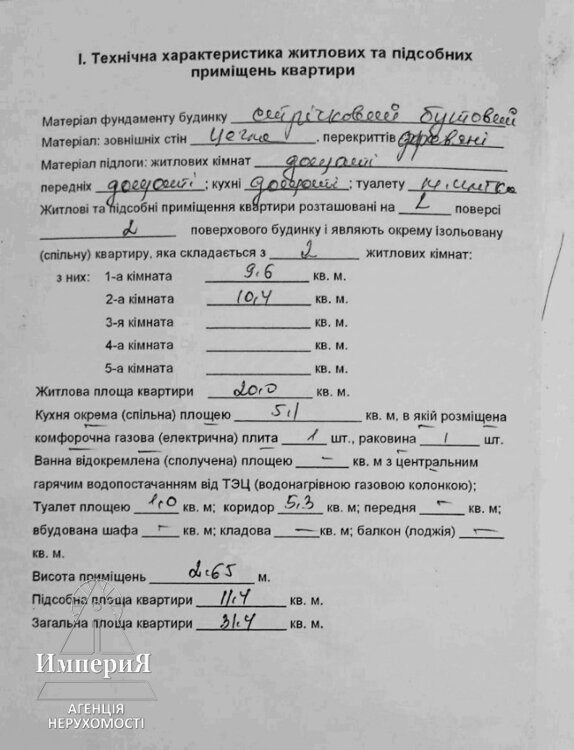 I. Технічна характеристика житлових та підсобних
приміщень квартири
Матеріал фундаменту будинку стрічковий бутовий
Матеріал: зовнішніх стін цегла, перекриттів дерев'яні
Матеріал підлоги: житлових кімнат дощаті
передніх дощаті; кухні дощаті; туалету м. плитка
Житлові та підсобні приміщення квартири розташовані на 2 поверсі
2 поверхового будинку і являють окрему ізольовану
(спільну) квартиру, яка складається з 2 житлових кімнат:
з них: 1-а кімната 9.6 кв. м.
2-а кімната 10,4 кв. м.
3-я кімната кв. м.
4-а кімната кв. м.
5-а кімната кв. м.
Житлова площа квартири 20.0 кв. м.
Кухня окрема (спільна) площею 5,1 кв. м, в якій розміщена
комфорочна газова (електрична) плита 1 шт., раковина 1 шт.
Ванна відокремлена (сполучена) площею – кв. м з центральним
гарячим водопостачанням від ТЭЦ (водонагрівною газовою колонкою);
Туалет площею 1,0 кв. м; коридор 5,3 кв. м; передня – кв. м;
вбудована шафа – кв. м; кладова – кв. м; балкон (лоджія) –
кв. м.
Висота приміщень 2.65 м.
Підсобна площа квартири 11.4 кв. м.
Загальна площа квартири 31.4 кв. м.
ИмпериЯ
АГЕНЦІЯ
НЕРУХОМОСТІ